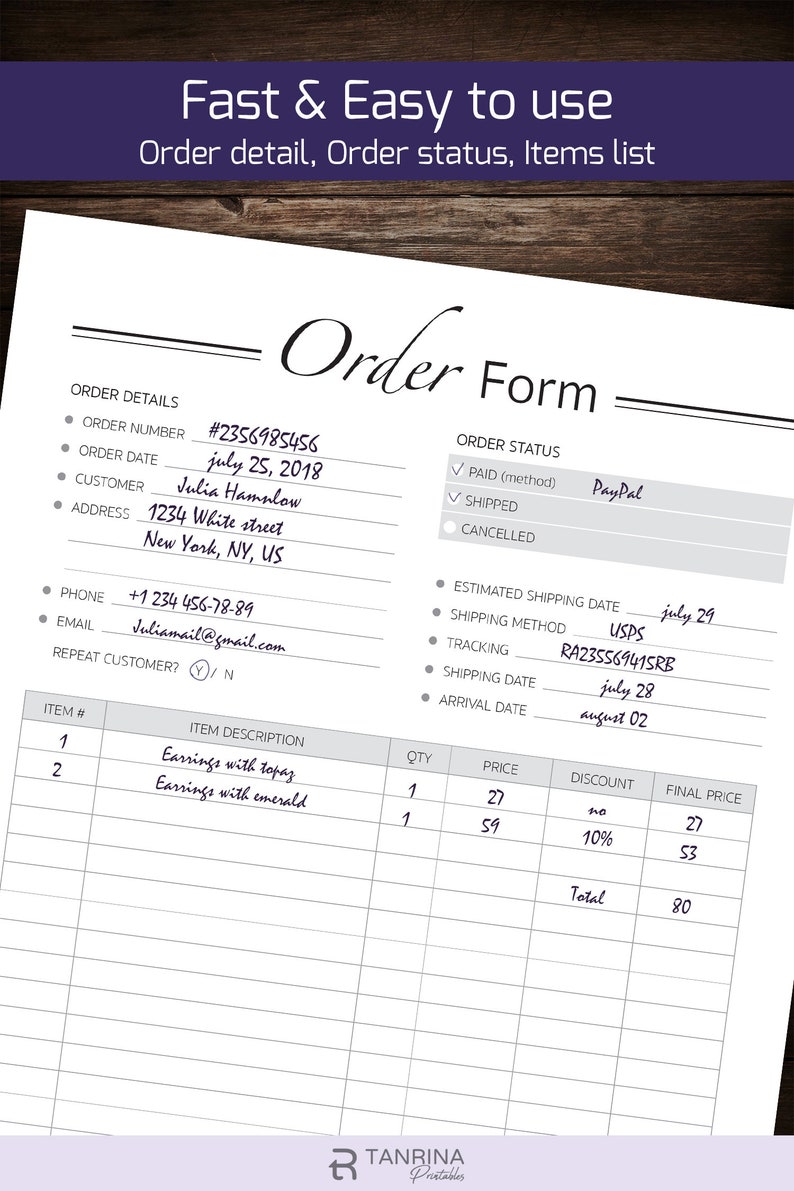 Fast & Easy to use
Order detail, Order status, Items list
Order Form
ORDER DETAILS
ORDER NUMBER #2356985456
ORDER DATE july 25, 2018
CUSTOMER Julia Hamnlow
ADDRESS 1234 White street
New York, NY, US
PHONE +1 234 456-78-89
EMAIL Juliamail@gmail.com
REPEAT CUSTOMER? Y / N
ORDER STATUS
PAID (method) PayPal
SHIPPED
CANCELLED
ESTIMATED SHIPPING DATE july 29
SHIPPING METHOD USPS
TRACKING RA235569415RB
SHIPPING DATE july 28
ARRIVAL DATE august 02
ITEM # ITEM DESCRIPTION QTY PRICE DISCOUNT FINAL PRICE
1 Earrings with topaz 1 27 no 27
2 Earrings with emerald 1 59 10% 53
Total 80
TANRINA
Printables